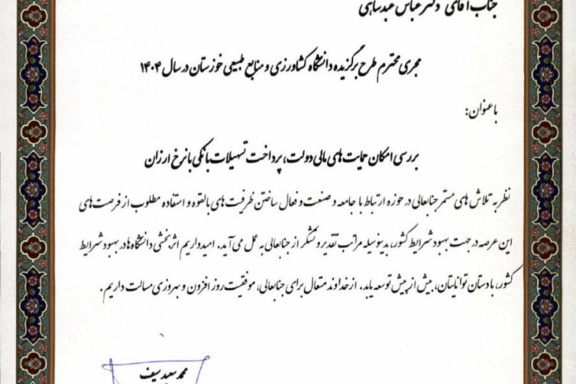 جناب آقای دکتر عباس عبدشاهی
مجری محترم طرح برگزیده دانشگاه کشاورزی و منابع طبیعی خوزستان در سال ۱۴۰۴
با عنوان:
بررسی امکان حمایت های مالی دولت، پرداخت تسهیلات بانکی با نرخ ارزان
نظر به تلاش های مستمر جنابعالی در حوزه ارتباط با جامعه و صنعت و فعال ساختن ظرفیت های بالقوه و استفاده مطلوب از فرصت های
این عرصه در جهت بهبود شرایط کشور، بدینوسیله مراتب تقدیر و تشکر از جنابعالی به عمل می آید. امید داریم اثربخشی دانشگاه ها در بهبود شرایط
کشور، با دستان توانایتان، بیش از پیش توسعه یابد. از خداوند متعال برای جنابعالی، موفقیت روز افزون و بهروزی مسالت داریم.
محمد سعید سیف